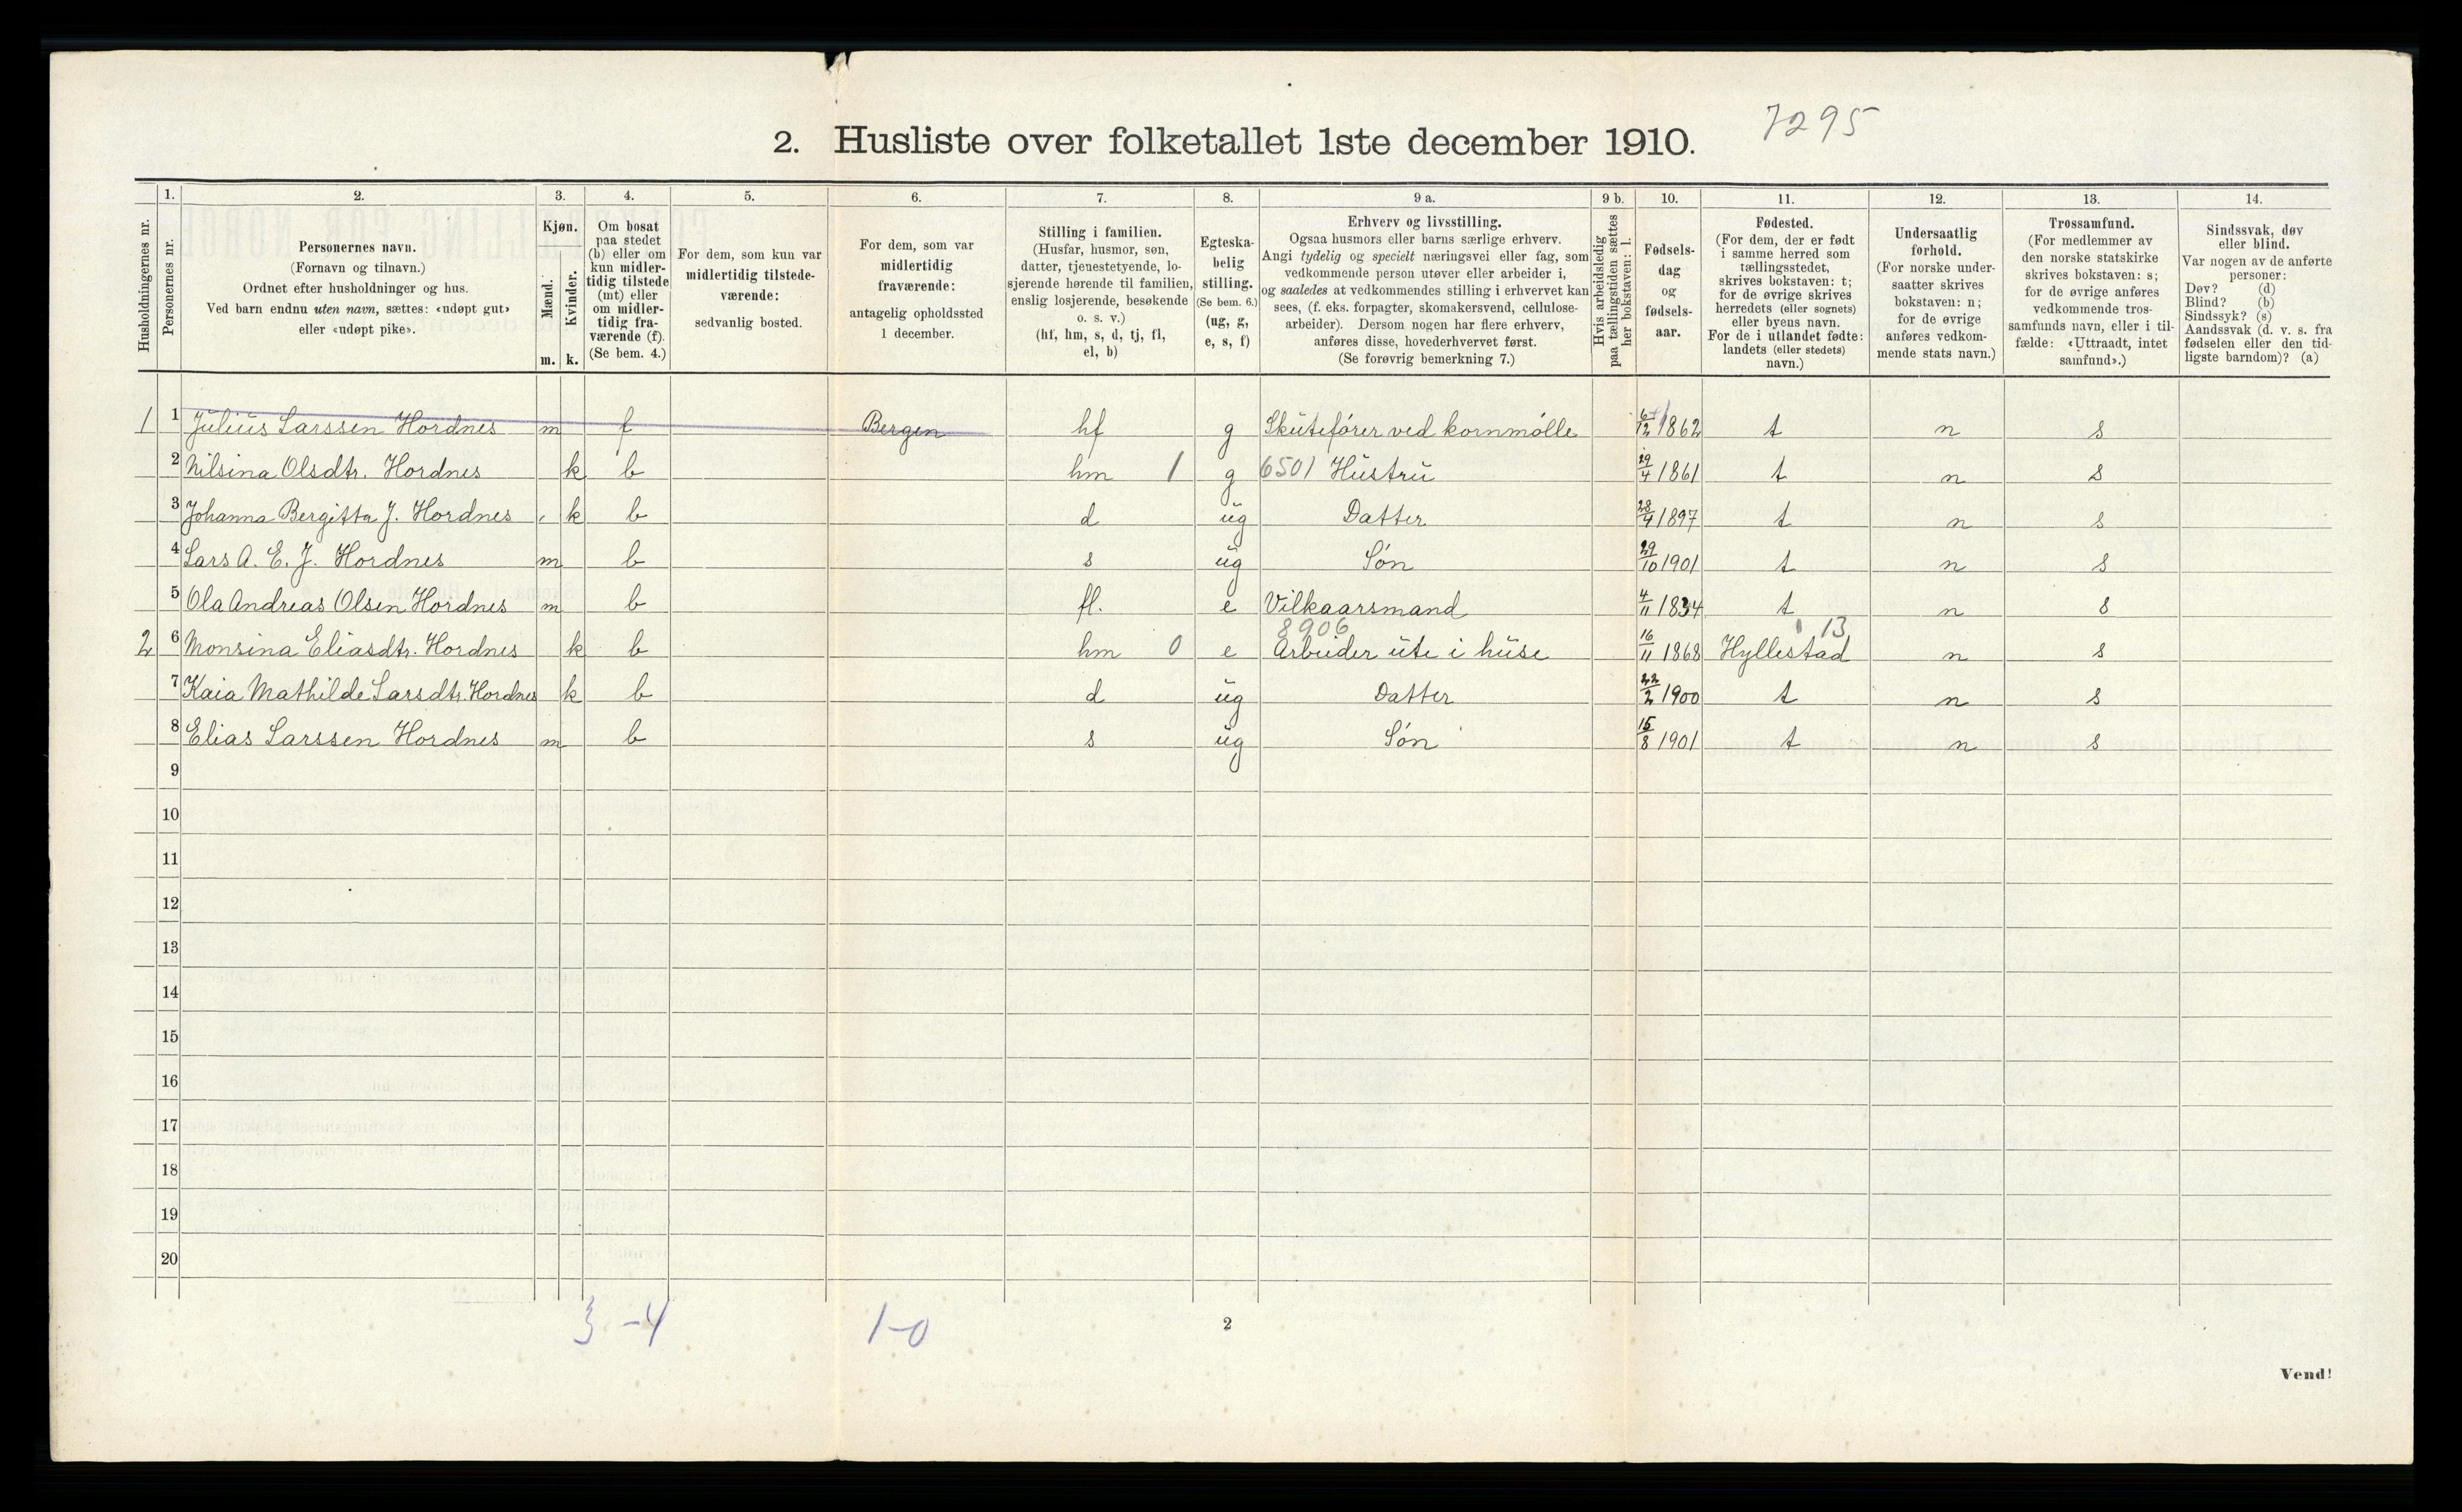 7295
2. Husliste over folketallet 1ste december 1910.
Husholdningernes nr.
1.
Personernes nr.
2.
Personernes navn.
(Fornavn og tilnavn.)
Ordnet efter husholdninger og hus.
Ved barn endnu uten navn, sættes: «udøpt gut»
eller «udøpt pike».
3.
Kjøn.
Mænd.
Kvinder.
m. k.
4.
Om bosat
paa stedet
(b) eller om
kun midler-
tidig tilstede
(mt) eller
om midler-
tidig fra-
værende (f).
(Se bem. 4.)
5.
For dem, som kun var
midlertidig tilstede-
værende:
sedvanlig bosted.
6.
For dem, som var
midlertidig
fraværende:
antagelig opholdssted
1 december.
7.
Stilling i familien.
(Husfar, husmor, søn,
datter, tjenestetyende, lo-
sjerende hørende til familien,
enslig losjerende, besøkende
o. s. v.)
(hf, hm, s, d, tj, fl,
el, b)
8.
Egteska-
belig
stilling.
(Se bem. 6.)
(ug, g,
e, s, f)
9 a.
Erhverv og livsstilling.
Ogsaa husmors eller barns særlige erhverv.
Angi tydelig og specielt næringsvei eller fag, som
vedkommende person utøver eller arbeider i,
og saaledes at vedkommendes stilling i erhvervet kan
sees, (f. eks. forpagter, skomakersvend, cellulose-
arbeider). Dersom nogen har flere erhverv,
anføres disse, hovederhvervet først.
(Se forøvrig bemerkning 7.)
9 b.
Hvis arbeidsledig
paa tællingstiden sættes
her bokstaven: l.
10.
Fødsels-
dag
og
fødsels-
aar.
11.
Fødested.
(For dem, der er født
i samme herred som
tællingsstedet,
skrives bokstaven: t;
for de øvrige skrives
herredets (eller sognets)
eller byens navn.
For de i utlandet fødte:
landets (eller stedets)
navn.)
12.
Undersaatlig
forhold.
(For norske under-
saatter skrives
bokstaven: n;
for de øvrige
anføres vedkom-
mende stats navn.)
13.
Trossamfund.
(For medlemmer av
den norske statskirke
skrives bokstaven: s;
for de øvrige anføres
vedkommende tros-
samfunds navn, eller i til-
fælde: «Uttraadt, intet
samfund».)
14.
Sindssvak, døv
eller blind.
Var nogen av de anførte
personer:
Døv? (d)
Blind? (b)
Sindssyk? (s)
Aandssvak (d. v. s. fra
fødselen eller den tid-
ligste barndom)? (a)
1 1 Julius Larssen Hordnes m f Bergen hf g Skutefører ved kornmølle 6/12 1862 t n s
2 Nilsina Olsdtr. Hordnes k b hm 1 g 6501 Hustru 29/4 1861 t n s
3 Johanna Bergitta J. Hordnes k b d ug Datter 28/4 1897 t n s
4 Lars A. E. J. Hordnes m b s ug Søn 29/10 1901 t n s
5 Ola Andreas Olsen Hordnes m b fl. e Vilkaarsmand 4/11 1834 t n s
8906 13
2 6 Monsina Eliasdtr. Hordnes k b hm 0 e Arbeider ute i huse 16/11 1868 Hyllestad n s
7 Kaia Mathilde Larsdtr. Hordnes k b d ug Datter 22/2 1900 t n s
8 Elias Larssen Hordnes m b s ug Søn 15/8 1901 t n s
9
10
11
12
13
14
15
16
17
18
19
20
3 - 4 1-0
2
Vend!